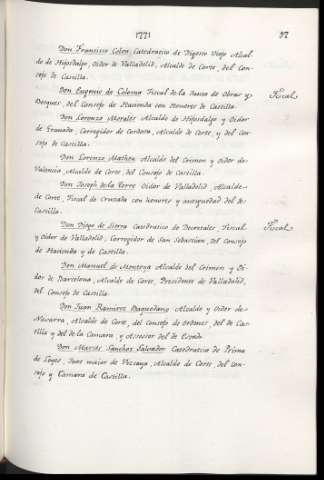 1771 37
Don Francisco Colon Catedratico de Digesto Viejo Alcal
de de Hijosdalgo, Oidor de Valladolid, Alcalde de Corte, del Con-
sejo de Castilla.
Don Eugenio de Coloma Fiscal de la Junta de Obras y Fiscal
Bosques, del Consejo de Hacienda con Honores de Castilla.
Don Lorenzo Morales Alcalde de Hijosdalgo y Oidor
de Granada, Corregidor de Cordova, Alcalde de Corte, y del Con-
sejo de Castilla.
Don Lorenzo Matheu Alcalde del Crimen y Oidor de
Valencia, Alcalde de Corte, del Consejo de Castilla.
Don Joseph de la Torre Oidor de Valladolid, Alcalde
de Corte, Fiscal de Cruzada con honores y antiguedad del de
Castilla.
Don Diego de Sierra Catedratico de Decretales Fiscal Fiscal
y Oidor de Valladolid, Corregidor de San Sebastian, del Consejo
de Hacienda y de Castilla.
Don Manuel de Montoya Alcalde del Crimen y Oi-
dor de Barcelona, Alcalde de Corte, Presidente de Valladolid,
del Consejo de Castilla.
Don Juan Ramirez Baquedano Alcalde y Oidor de
Navarra, Alcalde de Corte, del Consejo de Ordenes, del de Cas-
tilla y del de la Camara, y Asesor del de Estado.
Don Marcos Sanchez Salvador Catedratico de Prima
de Leyes, Juez maior de Vizcaya, Alcalde de Corte, del Con-
sejo y Camara de Castilla.